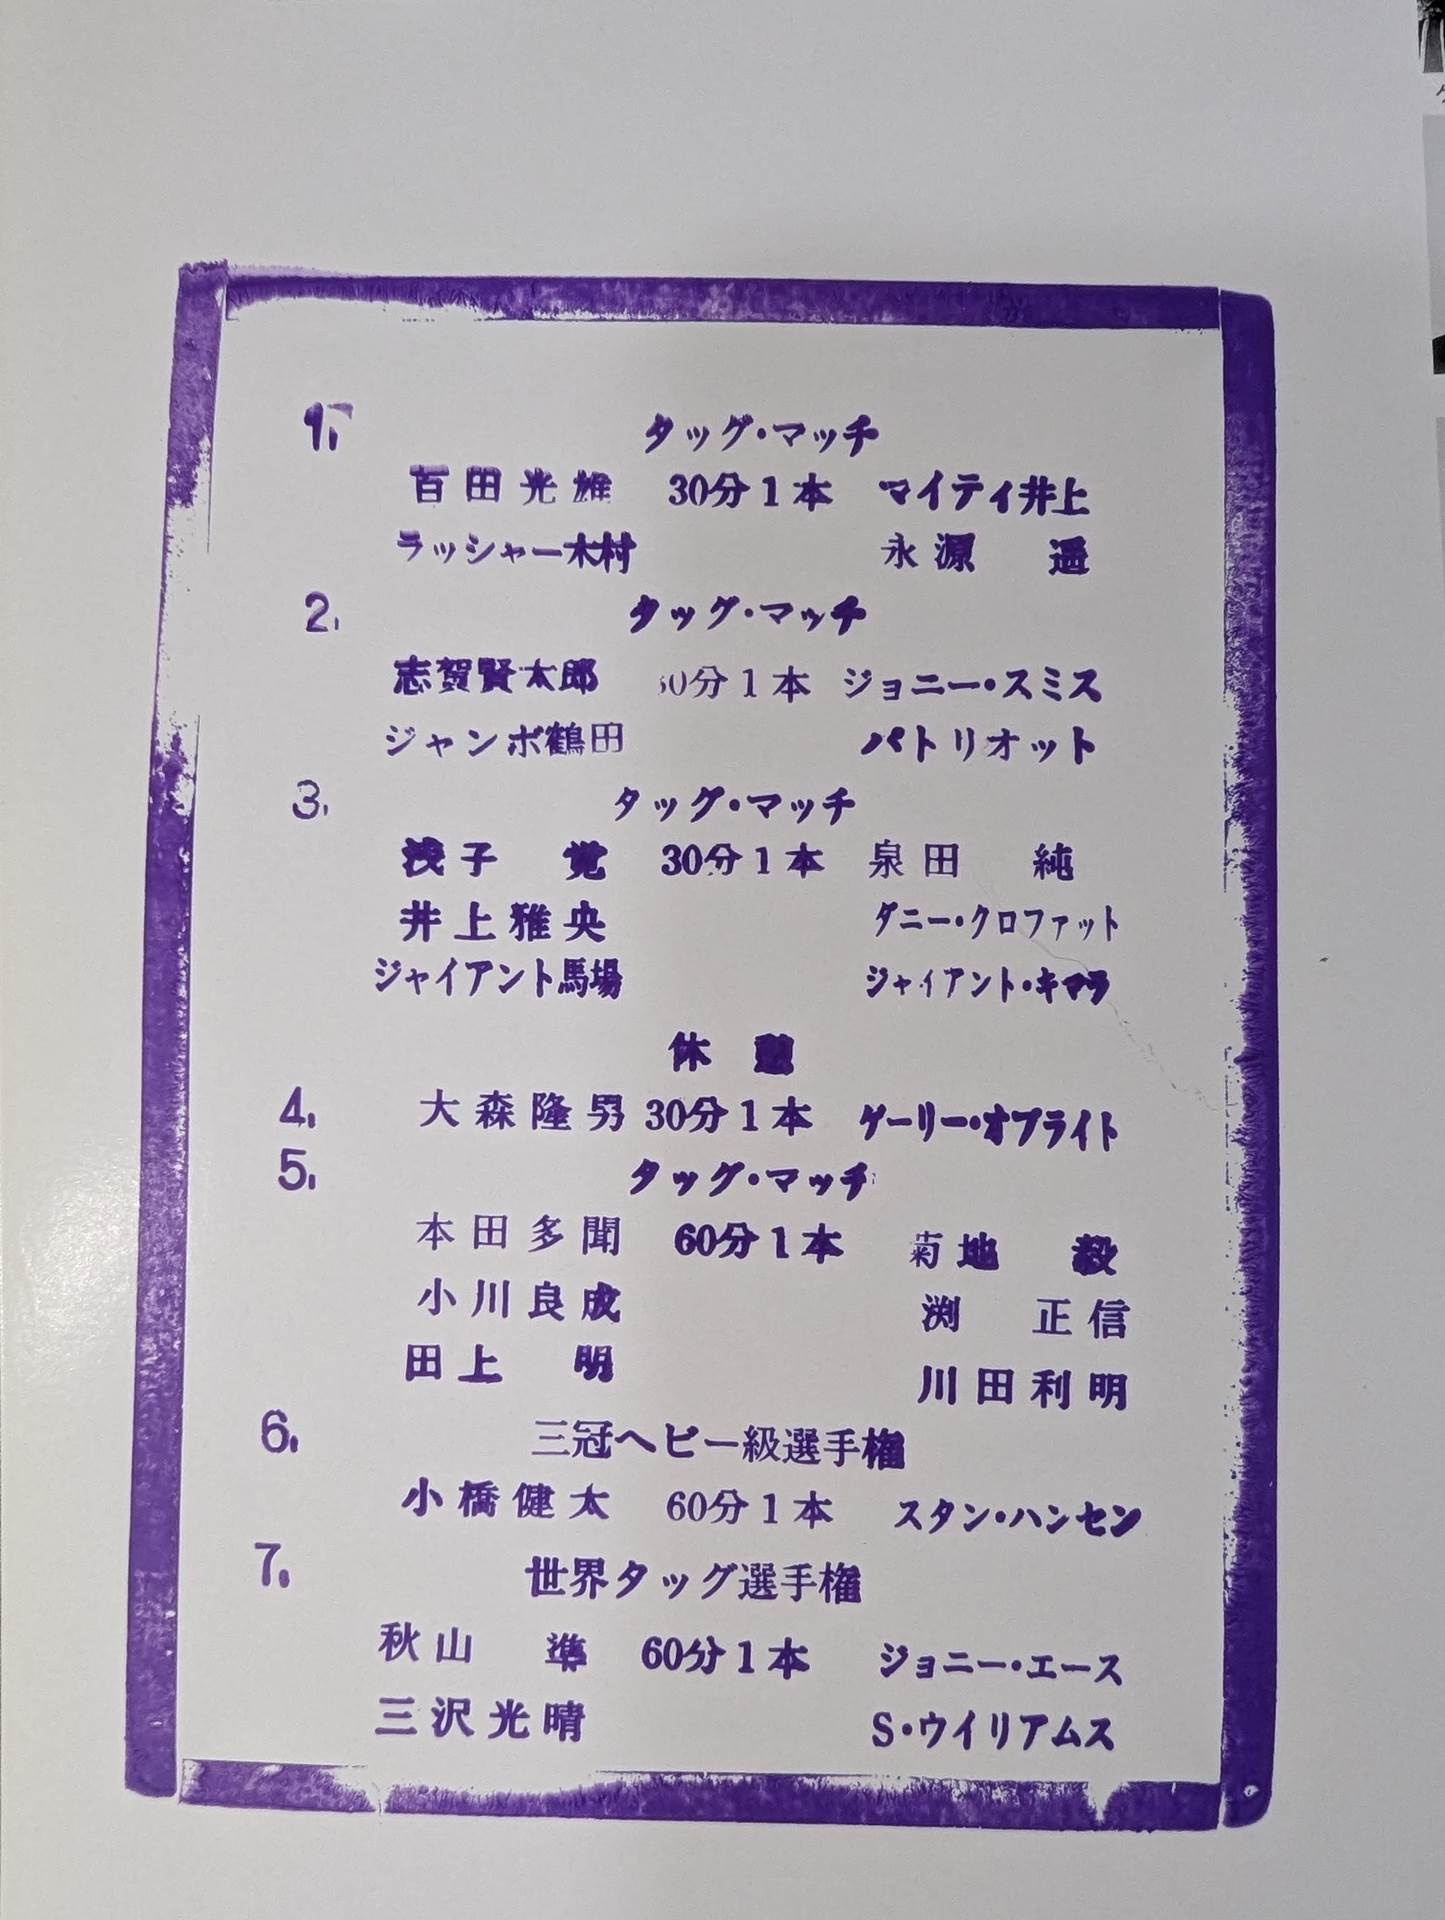 1. タッグ・マッチ
百田光雄 30分1本 マイティ井上
ラッシャー木村 永源 遥
2. タッグ・マッチ
志賀賢太郎 30分1本 ジョニー・スミス
ジャンボ鶴田 パトリオット
3. タッグ・マッチ
浅子 覚 30分1本 泉田 純
井上雅央 ダニー・クロファット
ジャイアント馬場 ジャイアント・キマラ
休 憩
4. 大森隆男 30分1本 ゲーリー・オブライト
5. タッグ・マッチ
本田多聞 60分1本 菊地 毅
小川良成 渕 正信
田上 明 川田利明
6. 三冠ヘビー級選手権
小橋健太 60分1本 スタン・ハンセン
7. 世界タッグ選手権
秋山 準 60分1本 ジョニー・エース
三沢光晴 S・ウイリアムス